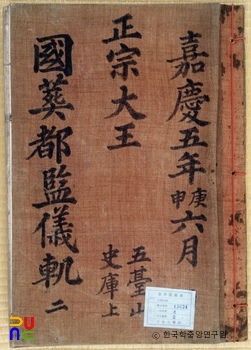 嘉慶五年庚申六月
正宗大王
五臺山
史庫上
國葬都監儀軌 二
한국학중앙연구원